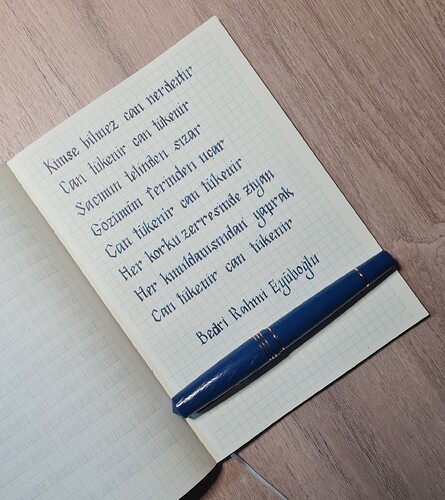 Kimse bilmez can nerdedir
Can tükenir can tükenir
Saçının telinden sızar
Gözünün ferinden uçar
Can tükenir can tükenir
Her korku zerresinde ziyan
Her kımıldanışından yaprak
Can tükenir can tükenir
Bedri Rahmi Eyüboğlu